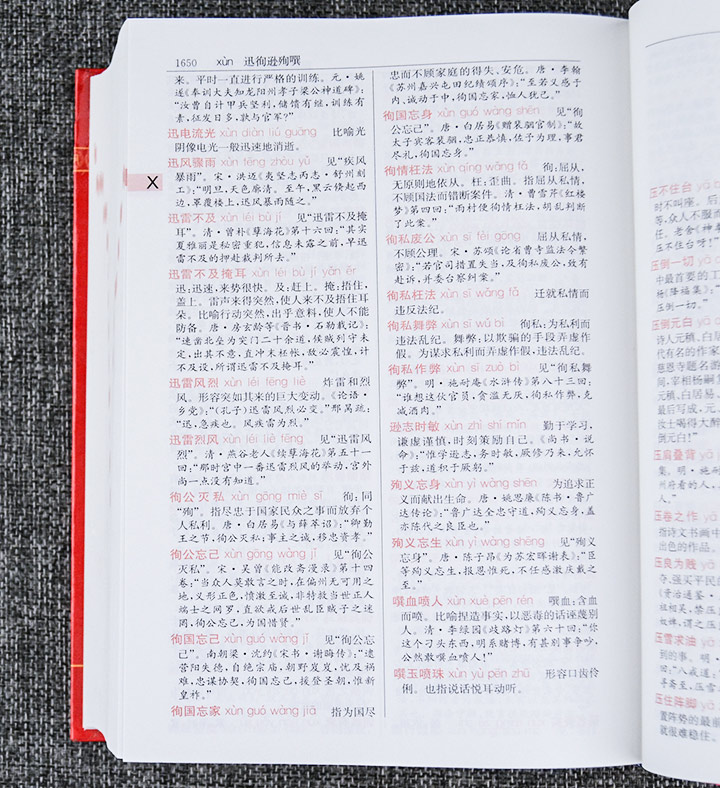 1650 xùn 迅徇逊殉噀
来。平时一直进行严格的训练。元·姚
遂《奉训大夫知龙阳州孝子梁公神道碑》：
“汝曹自计甲兵坚利，储偫有继，训练有
素，征发日多，孰与官军？”
迅电流光 xùn diàn liú guāng 比喻光
阴像电光一般迅速地消逝。
迅风骤雨 xùn fēng zhòu yǔ 见“疾风
暴雨”。宋·洪迈《夷坚志丙志·舒州刻
工》：“明旦，天色廓清。至午，黑云倏起西
边，罩覆楼上，迅风暴雨随之。”
X
迅雷不及 xùn léi bù jí 见“迅雷不及掩
耳”。清·曾朴《孽海花》第十六回：“其实
夏雅丽是秘密重犯，信息未露之前，早迅
雷不及的押赴裁判所去。”
迅雷不及掩耳 xùn léi bù jí yǎn ěr
迅：迅速，来势很快。及：赶上。掩：捂住，
盖上。雷声来得突然，使人来不及捂住耳
朵。比喻行动突然，出乎意料，使人不能
防备。唐·房玄龄等《晋书·石勒载记》：
“速凿北垒为突门二十余道，候贼列守未
定，出其不意，直冲末柸帐，敌必震惶，计
不及设，所谓迅雷不及掩耳。”
迅雷风烈 xùn léi fēng liè 炸雷和烈
风。形容突如其来的巨大变动。《论语·
乡党》：“（孔子）迅雷风烈必变。”邢昺疏：
“迅，急疾也。风疾雷为烈。”
迅雷烈风 xùn léi liè fēng 见“迅雷风
烈”。清·燕谷老人《续孽海花》第五十一
回：“那时宫中一番迅雷烈风的举动，宫外
尚一点没有知道。”
徇公灭私 xùn gōng miè sī 徇：同
“殉”。指尽忠于国家民众之事而放弃个
人私利。唐·白居易《与薛萃诏》：“卿勤
王之节，徇公灭私；事主之诚，移忠资孝。”
徇公忘己 xùn gōng wàng jǐ 见“徇公
灭私”。宋·吴曾《能改斋漫录》第十四
卷：“当众人莫敢言之时，在偏州无可用之
地，义形正色，愤激至诚，非特救当世正人
端士之网罗，直欲戒后世乱臣贼子之迷
罔，徇公忘己，为国惜贤。”
徇国忘己 xùn guó wàng jǐ 见“徇公忘
己”。南朝梁·沈约《宋书·谢晦传》：“逮
营阳失德，自绝宗庙，朝野岌岌，忧及祸
难，忠谋协契，徇国忘己，援登圣朝，惟新
皇祚。”
徇国忘家 xùn guó wàng jiā 指为国尽
忠而不顾家庭的得失、安危。唐·李翰
《苏州嘉兴屯田纪绩颂序》：“至若义感于
内，诚动于中，徇国忘家，恤人犹己。”
徇国忘身 xùn guó wàng shēn 见“徇
公忘己”。唐·白居易《赠裴弱官制》：“故
太子宾客裴弱，忠正恭慎，佐予为理，事君
尽礼，徇国忘身。”
徇情枉法 xùn qíng wǎng fǎ 徇：屈从，
无原则地依从。枉：歪曲。指屈从私情，
不顾国法而错断案件。清·曹雪芹《红楼
梦》第四回：“雨村便徇情枉法，胡乱判断
了此案。”
徇私废公 xùn sī fèi gōng 屈从私情，
不顾公理。宋·苏颂《论省曹寺监法令繁
密》：“若官司措置失当，及徇私废公，致有
赴诉，并委台察纠案。”
徇私枉法 xùn sī wǎng fǎ 迁就私情而
违反法纪。
徇私舞弊 xùn sī wǔ bì 徇私：为私利而
违法乱纪。舞弊：以欺骗的手段弄虚作
假。为谋求私利而弄虚作假，违法乱纪。
徇私作弊 xùn sī zuò bì 见“徇私舞
弊”。明·施耐庵《水浒传》第八十三回：
“谁想这伙官员，贪滥无厌，徇私作弊，克
减酒肉。”
逊志时敏 xùn zhì shí mǐn 勤于学习，
谦虚谨慎，时刻策励自己。《尚书·说
命》：“惟学逊志，务时敏，厥修乃来，允怀
于兹，道积于厥躬。”
殉义忘身 xùn yì wàng shēn 为追求正
义而献出生命。唐·姚思廉《陈书·鲁广
达传论》：“鲁广达全忠守道，殉义忘身，盖
亦陈代之良臣也。”
殉义忘生 xùn yì wàng shēng 见“殉义
忘身”。唐·陈子昂《为苏宏晖谢表》：“臣
等殉义忘生，报恩惟死，不任感激庆戴之
至。”
噀血喷人 xùn xuè pēn rén 噀血：含血
而喷。比喻捏造事实，以恶毒的话诬蔑别
人。清·李绿园《歧路灯》第六十回：“你
这个刁头东西，明系赌博，有甚别事争吵，
公然敢噀血喷人！”
噀玉喷珠 xùn yù pēn zhū 形容口齿伶
俐。也指说话悦耳动听。
压不住台 yā
时不叫座。后
等，众人不服
任。老舍《神拳
压不住台呀！”
压倒一切 yā
中最首要的工
杨《降福集》：“
压倒一切。”
压倒元白 yā
诗人元稹、白居
代有名的作家
慈恩寺题名游
同，宰相杨嗣
元稹、白居易
最后写成，元
汝士喝得大醉
倒元白！”
压肩叠背 yā
集。明·施耐
州府看的人，
人。”
压卷之作 yā
指诗文书画中
出色的作品。
压良为贱 yā
夺，强买平民
《资治通鉴·
祖相吴，禁压
女，谓之压良
压雪求油 yā
到的事。明·
回：“八戒道：
寻斋至，压雪
压住阵脚 yā
置阵势的最前
就很难稳住。